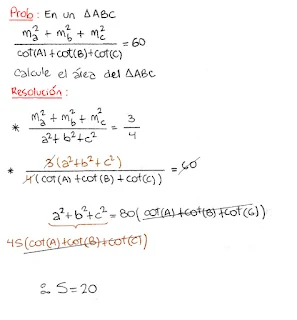 Prob: En un △ABC
m_a^2 + m_b^2 + m_c^2 / cot(A)+cot(B)+cot(C) = 60
Calcule el área del △ABC
Resolución:
* m_a^2 + m_b^2 + m_c^2 / a^2 + b^2 + c^2 = 3/4
* 3(a^2+b^2+c^2) / 4(cot(A)+cot(B)+cot(C)) = 60
a^2+b^2+c^2 = 80(cot(A)+cot(B)+cot(C))
4S(cot(A)+cot(B)+cot(C))
∴ S=20